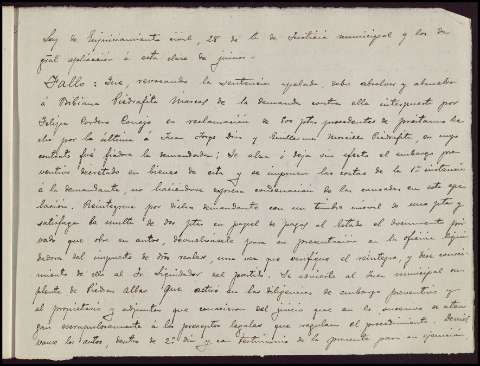 Ley de Enjuiciamiento civil, 28 de la de Justicia municipal y los de
gral aplicación á esta clase de juicios.-
Fallo: Que, revocando la sentencia apelada, debo absolver y absuelvo
á Bibiana Piedrafita Marcos de la demanda contra ella interpuesta por
Felipa Cordero Conejo en reclamación de 500 ptas, procedentes de préstamo he-
cho por la última á Juan Jorge Díaz y Piedrafita, en cuyo
contrato fué fiadora la demandada; Se alza ó deja sin efecto el embargo pre-
ventivo decretado en bienes de esta y se imponen las costas de la 1ª instancia
á la demandante, no haciéndose expresa condenación de las causadas en esta ape-
lación. Reintégrese por dicha demandante con un timbre móvil de una pta y
satisfaga la multa de dos ptas en papel de pagos al Estado el documento pri-
vado que obra en autos, devolviéndose para su presentación en la oficina liqui-
dadora del impuesto de Dros reales, una vez que verifique el reintegro, y dése conoci-
miento de ello al Sr Liquidador del partido. Se advierte al Juez municipal su-
plente de Piedras Albas que actuó en las diligencias de embargo preventivo y
al propietario y adjuntos que conocieron del juicio que en lo sucesivo se aten-
gan escrupulosamente á los preceptos legales que regulan el procedimiento. Devuél-
vanse los autos, dentro de 2º día y con testimonio de la presente para su ejecución